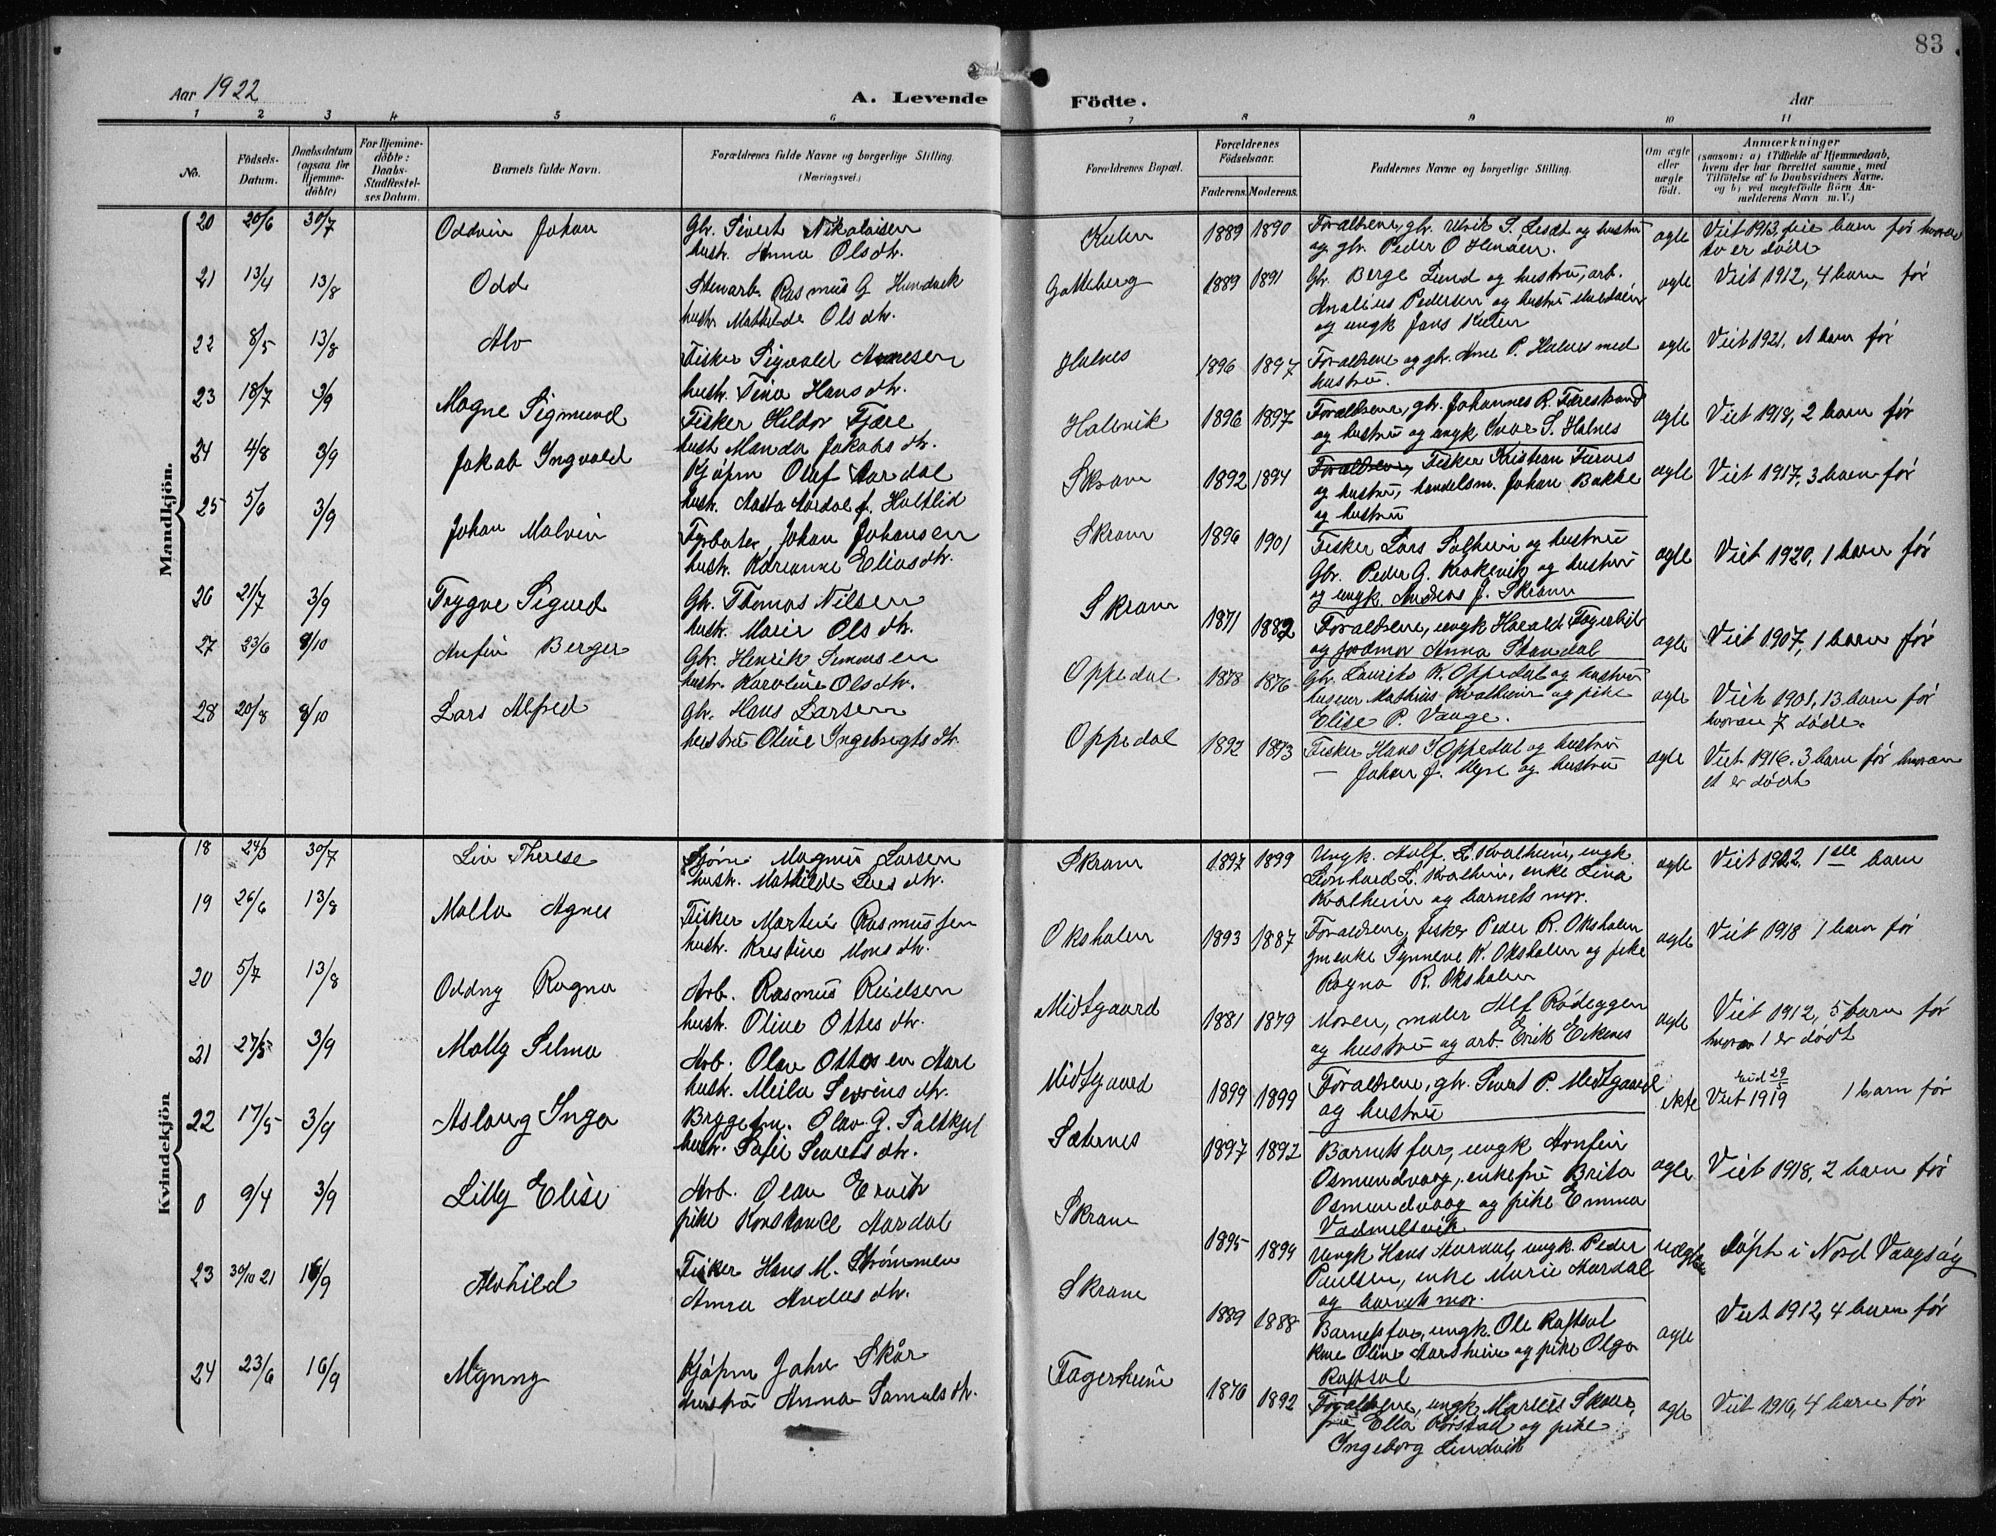 83
Aar 1922
A. Levende Födte.
Aar
1 2 3 4 5 6 7 8 9 10 11
No.
Födsels-Datum.
Daabsdatum (ogsaa for Hjemme-döbte)
For Hjemme-döbte: Daabs-Stadfæstel-ses Datum.
Barnets fulde Navn.
Forældrenes fulde Navne og borgerlige Stilling. (Næringsvei.)
Forældrenes Bopæl.
Forældrenes Födselsaar.
Faderens. Moderens.
Faddernes Navne og borgerlige Stilling.
Om ægte eller uægte födt.
Anmærkninger
(saasom: a) i Tilfælde af Hjemmedaab, hvem der har forrettet samme, med Tilföielse af to Daabsvidners Navne, og b) ved uægtefödte Börn An-melderens Navn m. V.)
Mandkjön.
20 20/6 30/7 Oddvin Johan Gbr. Sivert Nikolaisen
hustr. Anna Olsdtr. 1889 1890 Foraldrene, gbr. Ulrik S. og hustru
og gbr. Peder O Hensen. agte Viet 1913, barn før hvorav
to er døde
21 13/4 13/8 Odd Stenarb. Rasmus G Hundvik
hustr. Mathilde Olsdtr. Gotteberg 1889 1891 Gbr. Berge Lund og hustru, arb.
Analius Pedersen og hustru
og ungk Jans agte Viet 1912, 4 barn før
22 8/5 13/8 Alv Fisker Sigvald Arnesen
hustr. Tina Hansdtr. Halnes 1896 1897 Foraldrene og gbr. Arne P. Halnes med
hustru. agte Viet 1921, 1 barn før
23 18/7 3/9 Magne Sigmund Fisker Hildor Fjære
hustr Manda Jakobsdtr. Halsvik 1896 1897 Foraldrene, gbr. Johannes R. Færestrand
og hustru og ungk Ivar S. Halnes agte Viet 1918, 2 barn før
24 4/8 3/9 Jakob Ingvald Kjøpm Olaf Aardal
hustr. Aasta Aardal f. Holtlid Skram 1892 1894 Foraldrene, Fisker Kristian
og hustru, handelsm. Johan Bakke
og hustru agte Viet 1917, 3 barn før
25 5/6 3/9 Johan Malvin Fyrbøter Johan Johansen
hustr. Karianne Eliasdtr. Skram 1896 1901 Fisker Lars Solheim og hustru
Gbr. Peder G. Krokevik og hustru
og ungk. Andreas J. Skram agte Viet 1920, 1 barn før
26 21/7 3/9 Trygve Sigurd Gbr. Thomas Nilsen
hustr. Marie Olsdtr. Skram 1871 1882 Foraldrene, ungk Harald
og jordmor Anna Standal agte Viet 1907, 1 barn før
27 23/6 8/10 Anfin Berger Gbr. Henrik Simonsen
hustr. Karoline Olsdtr. Oppedal 1878 1876 Gbr. Laurits K. Oppedal og hustru
Mathias Kvalheim og pike
Elise P. Vaage. agte Viet 1901, 13 barn før
hvorav 7 døde.
28 20/8 8/10 Lars Alfred Gbr. Hans Larsen
hustru Oline Ingebrigtsdtr. Oppedal 1892 1893 Fisker Hans J Oppedal og hustru
— Johan J. Myre og hustru agte Viet 1916. 3 barn før hvorav
et er dødt
Kvindekjön
18 24/3 30/7 Liv Therese Magnus Larsen
hustr. Mathilde Larsdtr. Skram 1897 1899 Ungk. L. Kvalheim, ungk.
Leonhard L. Kvalheim, enke Lina
Kvalheim og barnets mor. agte Viet 1922 1ste barn
19 26/6 13/8 Malla Agnes Fisker Martin Rasmussen
hustr. Kristine Monsdtr. Okshalen 1893 1887 Foraldrene, fisker Peder R. Okshalen
Synneve K. Okshalen og pike
Ragna R. Okshalen agte Viet 1918 1 barn før
20 5/7 13/8 Oddny Ragna Arb. Rasmus Reidsen
hustr. Oline Ottesdtr. Midtgaard 1881 1879 Moren, maler Alf Rødeggen
og hustru og arb. Erik Eikenes agte Viet 1912, 5 barn før
hvorav 1 er dødt
21 27/5 3/9 Molly Selma Arb. Olav Ottesen
hustr. Meila Severinsdtr. Midtgaard 1899 1899 Foraldrene, gbr. Sivert P. Midtgaard
og hustru ekte Viet 1919 1 barn før
22 17/5 3/9 Aslaug Inga Olav G. Saltkjel
hustr. Sofie Sivertsdtr. Sæternes 1897 1892 Barnets far, ungk Arnfin
Osmundvaag, enkefru Brita
Osmundvaag og pike Emma
Vadmelsvik agte Viet 1918, 2 barn før
0 9/4 3/9 Lilly Elise Arb. Olav Ervik
pike Konstance Aardal Skram 1895 1899 Ungk Hans Aardal, ungk. Peder
Paulsen, enke Marie Aardal
og barnets mor. uagte døpt i Nord Vaagsøy
23 30/10 21 16/9 Alvhild Fisker Hans M. Strømmen
Anna Andasdtr. Skram 1889 1888 Barnets far, ungk. Ole Raftsal
Oline Aarsheim og pike Olga
Raftsal agte Viet 1912, 4 barn før
24 23/6 16/9 Mynny Kjøpm Johs Skår
hustru Anna Samuelsdtr. Fagerheim 1876 1892 Foraldrene, ungk Marius Skaar,
fru Ella Rorstad og pike
Ingeborg Lindvik agte Viet 1916, 4 barn før